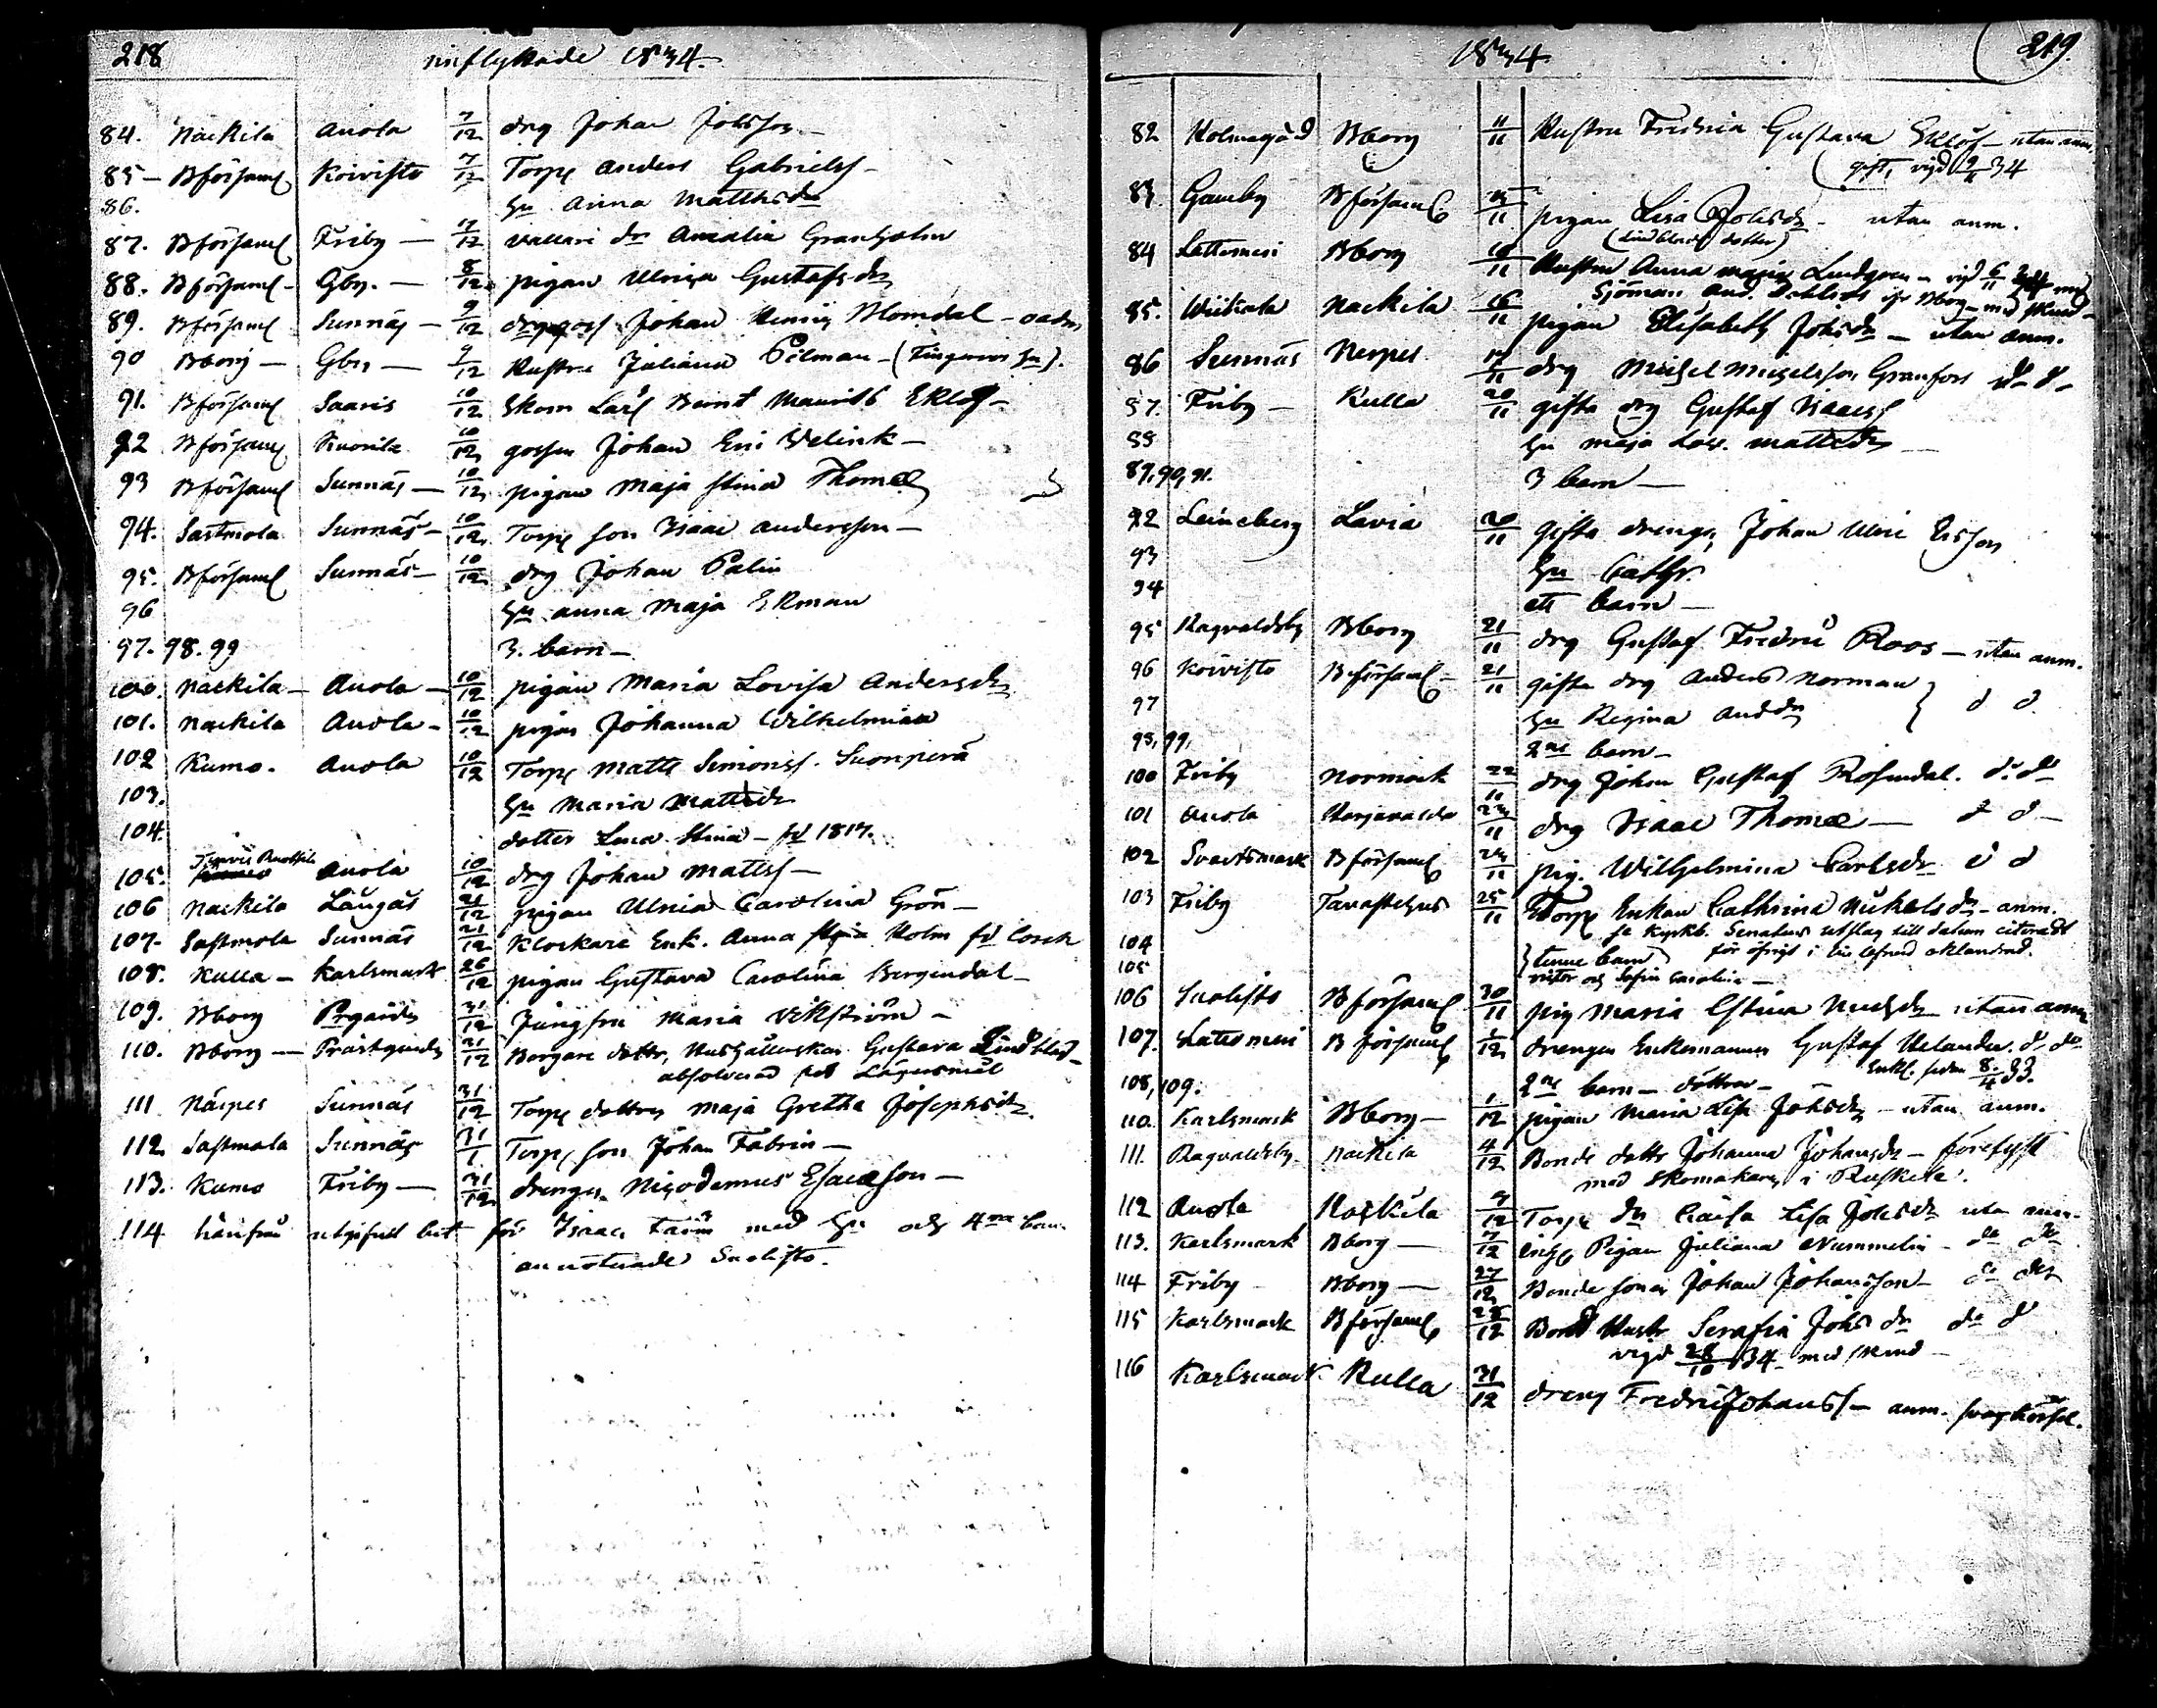 218
inflyttade 1834.
84. Nackila Anola 7/12 drg Johan Johsson
85 – Bförsaml Koivisto 7/12 Torp Anders Gabrielss
86. hu Anna Mattsdr
87. Bförsaml Friby – 7/12 dr Amalia Granholm
88. Bförsaml – Gby. – 8/12 pigan Ulrica Gustafsdr
89. Bförsaml Sunnäs – 9/12 Johan Henric Blomdal –
90 Bborg – Gby – 9/12 Hustru Juliana Pilman –
91. Bförsaml Saaris 10/12 Skom Carl Bernt Maurits Eklöf –
92 Bförsaml 10/12 gossen Johan Eric Velink –
93 Bförsaml Sunnäs – 10/12 pigan Maja Stina Thomæ
94. Sastmola Sunnäs – 10/12 Torp son Isaac Andersson –
95. Bförsaml Sunnäs – 10/12 drg Johan Palin
96 hu Anna Maja Ekman
97. 98. 99 3. barn –
100. Nackila – Anola – 10/12 pigan Maria Lovisa Andersdr
101. Nackila Anola – 10/12 pigan Johanna Wilhelmina
102 Kumo. Anola 10/12 Torp Matts Simonss. Suonperä
103. hu Maria Mattsdr
104. dotter Lena Stina – fd 1817.
105. Anola 10/12 drg Johan Mattss –
106 Nackila Långås 21/12 pigan Ulrica Carolina Grön –
107. Sastmola Sunnäs 21/12 Klockare Enk. Anna Holm fd
108. Kulla – Karlsmark 26/12 pigan Gustava Carolina Bergendal –
109. Bborg Prgården 31/12 Jungfru Maria Vikström –
110. Bborg – Prästgården 31/12 Borgare dottr, Hushållerskan Gustava Lindblad –
absolverad för Lägersmål
111 Närpes Sunnäs 31/12 Torp dottren Maja Gretha Josephsdr.
112 Sastmola Sunnäs 31/1 Torp son Johan Fabrin –
113. Kumo Friby – 31/12 drengen Nicodemus Esaiasson –
114 härifrån utgifvit bet för Isaac med hu och 4ra barn
annoterade Suolisto.
1834
219.
82 Holmegård Bborg 11/11 Hustru Fredrica Gustava Eklöf – utan anm,
gift, vigd 34
83 Gamby Bförsaml 11 pigan Lisa Johsdr – utan anm.
(Lindblads dotter)
84 Lattomeri Bborg 11 Hustru Anna Maria Lindgren – vigd 6/11 med
Sjöman And. Bborg – med
85. Nackila 16/11 pigan Elisabeth Johsdr – utan anm.
86 Sunnäs Nerpes 17/11 drg Michel Michelsson Granfors d– d–
87. Friby – Kulla 20/11 gifta drg Gustaf Isacss
88 hu Maja Lov. Mattsdr –
89, 90, 91. 3 barn –
92 Leineberg Lavia 20/11 gifta drengen Johan Ulric
93 hu Cathr.
94 ett barn –
95 Ragvaldsby Bborg 21/11 drg Gustaf Fredric Roos – utan anm.
96 Koivisto Bförsaml – 21/11 gifta drg Anders Norman
97 hu Regina Anddr } d d
98, 99, 2ne barn –
100 Friby Normark 22/11 drg Johan Gustaf Rosendal. do do
101 Anola Harjavalda 11 drg Isaac Thomæ – d d –
102 Svartsmark Bförsaml 11 pig. Wilhelmina Carlsdr d d
103 Friby Tavastehus 25/11 Torp Enkan Cathrina Michelsdr – anm.
se Kyrkb. Senatens utslag till datum citeradt
104 för öfrigt i sin lefnad oklandrad.
105 } tvenne barn
Victor och Sofia Carolina –
106 Suolisto Bförsaml 30/11 pig Maria Stina utan anm
107. Lattomeri Bförsaml 1/12 drengen Enkemannen Gustaf Helander. do do
Enkl. sedan 8/4 33.
108, 109. 2ne barn – döttrar –
110. Karlsmark Bborg – 1/12 pigan Maria Lisa Johsdr – utan anm.
111. Ragvaldsby – Nackila 4/12 Bonde dottr Johanna Johansdr –
med Skomakaren i
112 Anola Nackila 7/12 Torp dr Caisa Lisa Johsdr utan anm.
113. Karlsmark Bborg – 7/12 Pigan Juliana Nummelin – do do
114 Friby – Bborg – 27/12 Bonde sonen Johan Johansson – do do
115 Karlsmark Bförsaml 28/12 Bond Hustr Serafia Johsdr do d
vigd 28/10 34 – med
116 Karlsmark Kulla 31/12 dreng Fredric Johanss – anm.